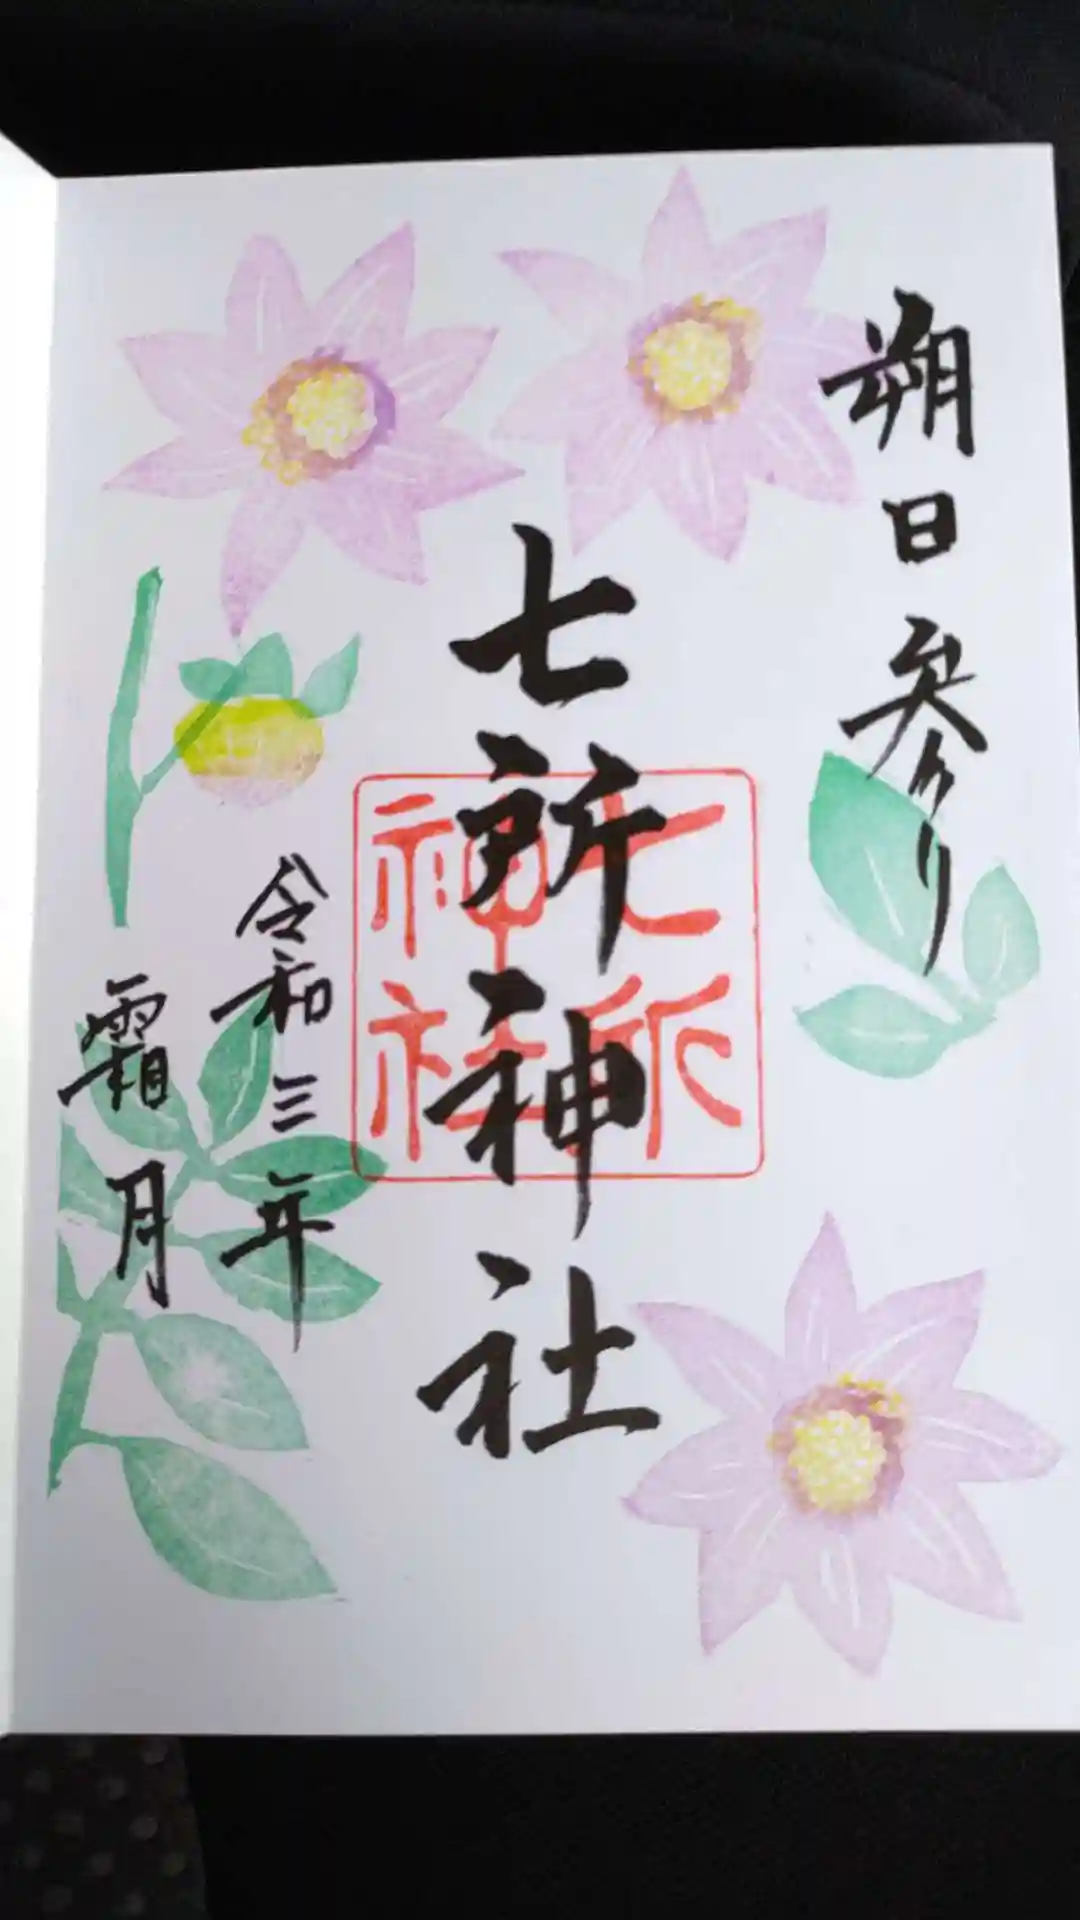 朔日参り
七所神社
七所神社
令和三年
霜月